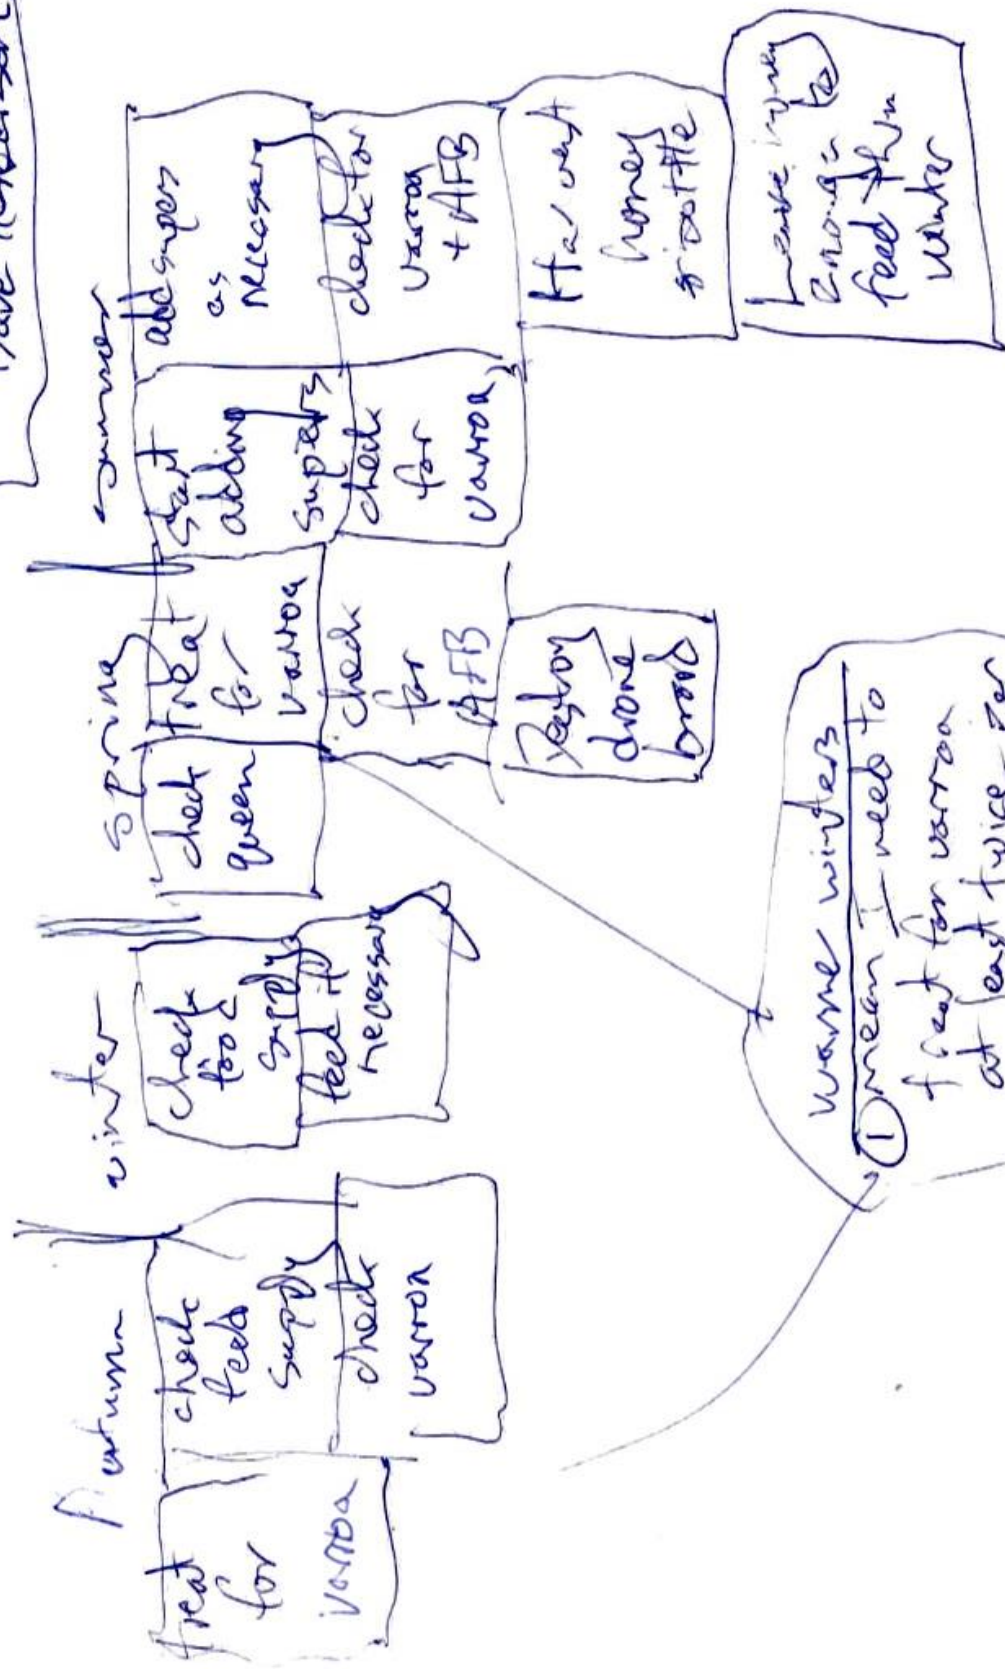 Autumn
treat
for
varroa
check
feed
supply
check
varroa
winter
check
food
supply
feed if
necessary
spring
check
queen
treat
for
varroa
check
for
AFB
Destroy
drone
brood
summer
start
adding
supers
check
for
varroa
add supers
as
necessary
check for
varroa
+ AFB
Harvest
honey
Leave honey
enough to
feed thru
winter
warmer winters
① mean I need to
treat for varroa
at least twice